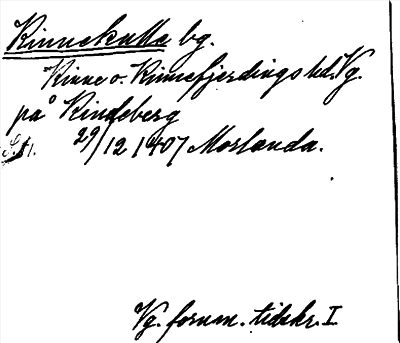 Kinnekulla bg.
Kinne o. Kinnefjerdings hd. Vg.
på Kindeberg
S. A. 29/12 1407 Morlanda.
Vg. fornm. tidskr. I